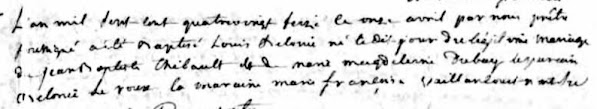 L'an mil sept cent quatrevingt seize le onze avril par nous prêtre
soussigné a été Baptisé Louis né le dit jour du légitime mariage
de jean Baptiste Thibault & de marie magdeleine Dubay le parain
le roux la maraine marie françoise Vaillancourt